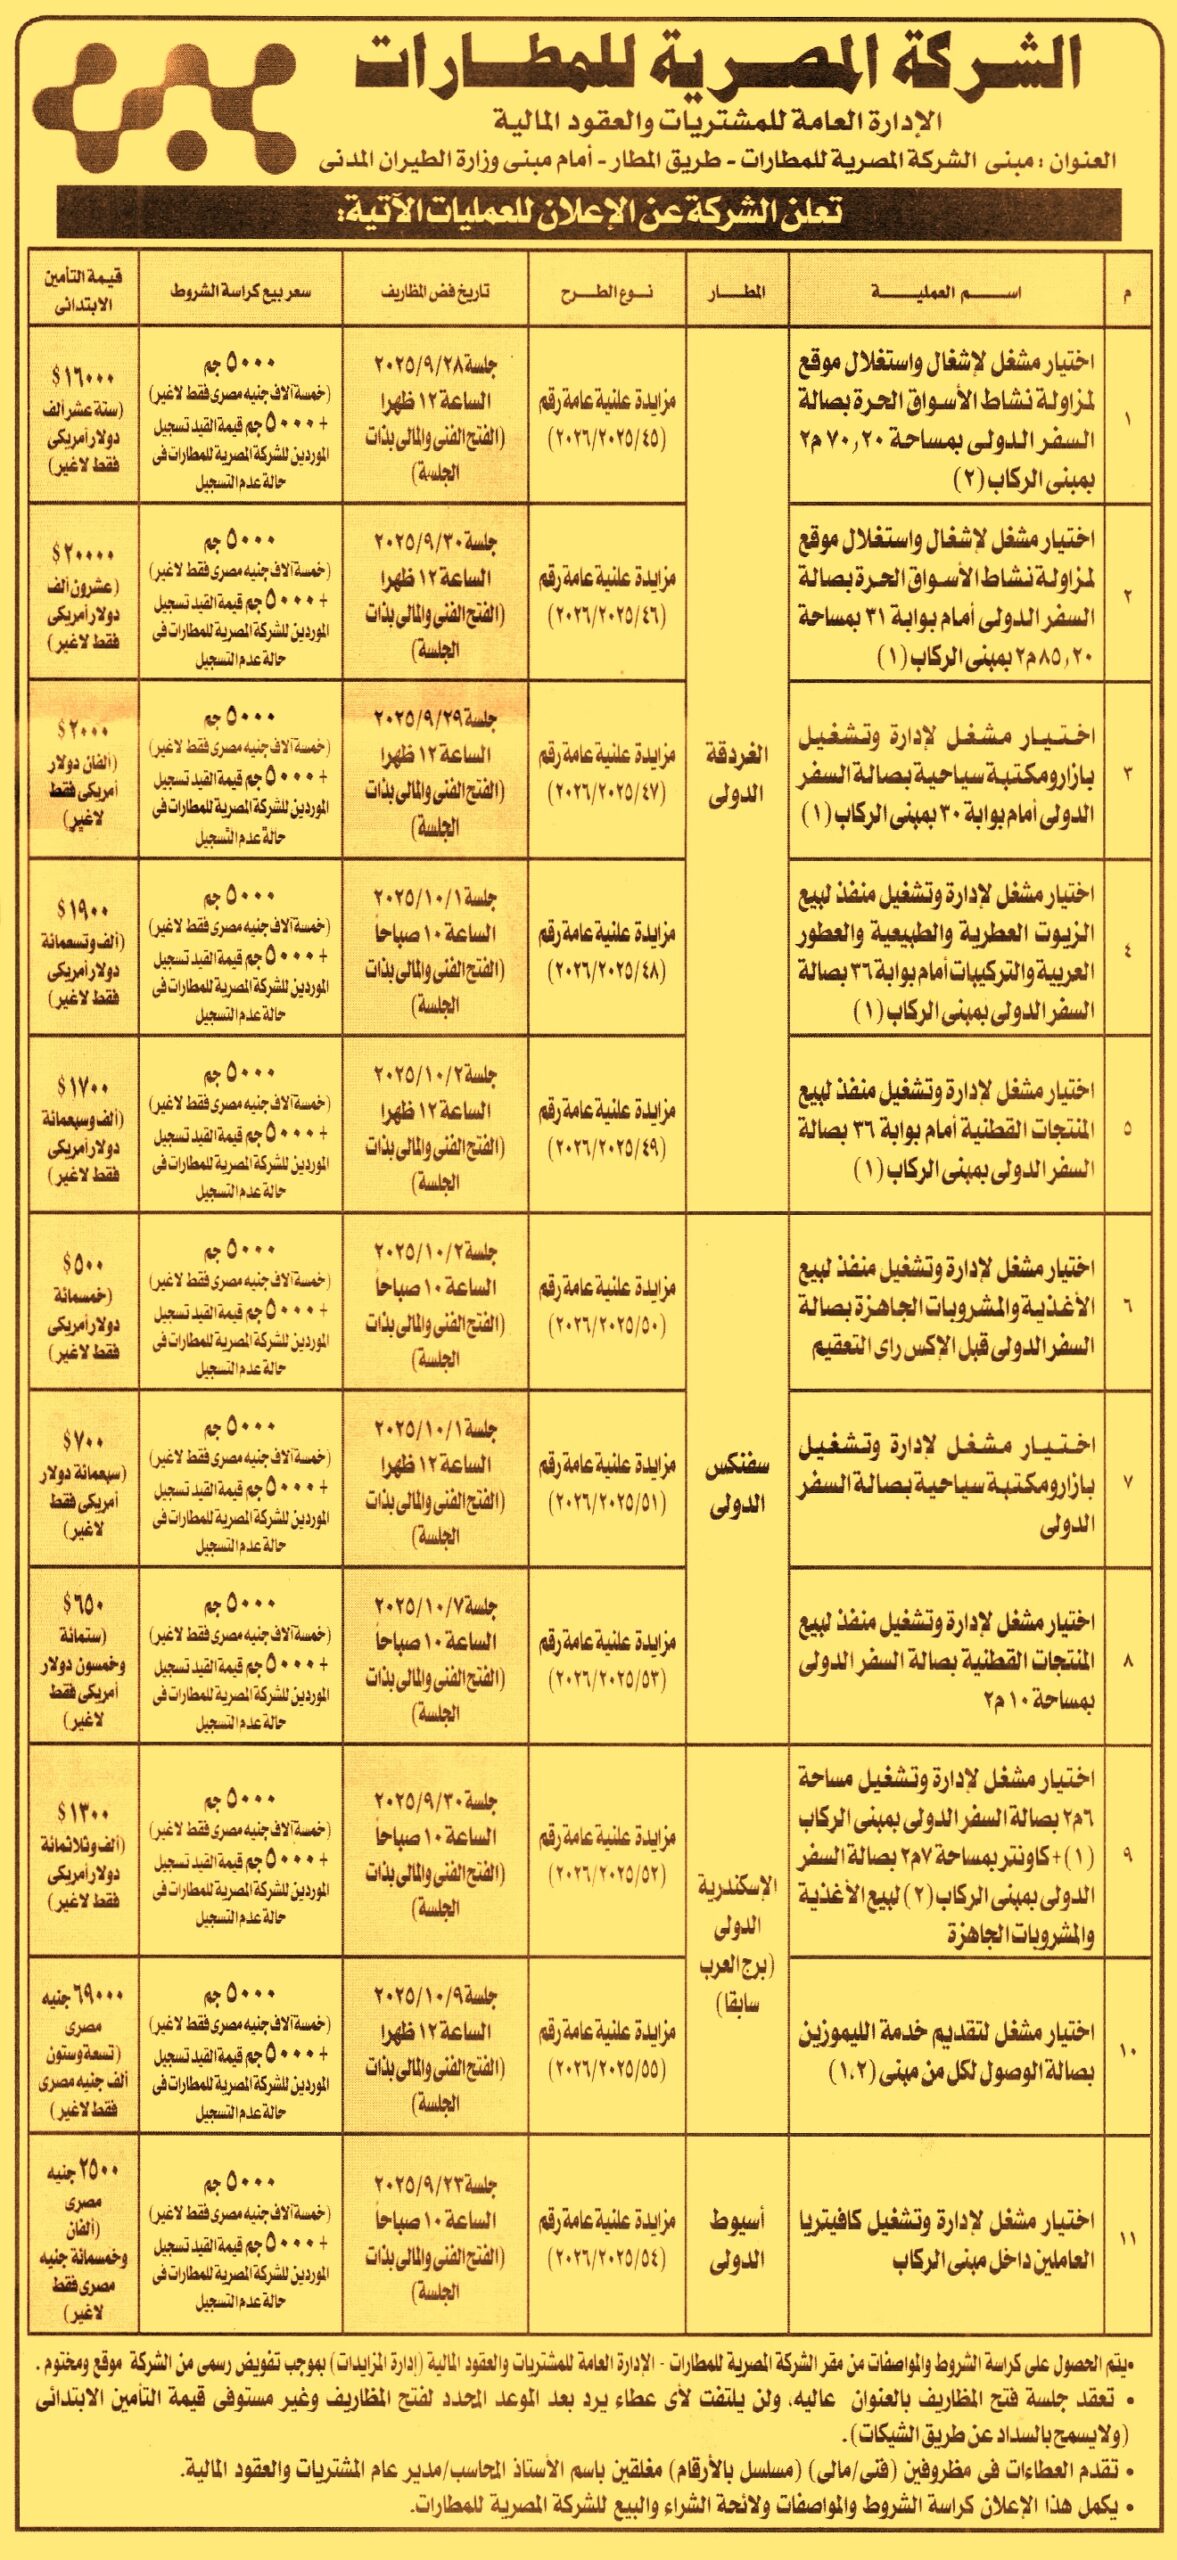 الشركة المصرية للمطارات
الإدارة العامة للمشتريات والعقود المالية
العنوان : مبنى الشركة المصرية للمطارات - طريق المطار - أمام مبنى وزارة الطيران المدنى
تعلن الشركة عن الإعلان للعمليات الآتية:
م
اسم العملية
المطار
نوع الطرح
تاريخ فض المظاريف
سعر بيع كراسة الشروط
قيمة التأمين
الابتدائى
١
اختيار مشغل لإشغال واستغلال موقع
لمزاولة نشاط الأسواق الحرة بصالة
السفر الدولى بمساحة ٧٠,٢٠ م٢
بمبنى الركاب (٢)
الغردقة
الدولى
مزايدة علنية عامة رقم
(٢٠٢٦/٢٠٢٥/٤٥)
جلسة ٢٠٢٥/٩/٢٨
الساعة ١٢ ظهرا
(الفتح الفنى والمالى بذات
الجلسة)
٥٠٠٠ جم
(خمسة آلاف جنيه مصرى فقط لاغير)
+ ٥٠٠٠ جم قيمة القيد تسجيل
الموردين للشركة المصرية للمطارات فى
حالة عدم التسجيل
١٦٠٠٠ $
(ستة عشر ألف
دولار أمريكى
فقط لاغير)
٢
اختيار مشغل لإشغال واستغلال موقع
لمزاولة نشاط الأسواق الحرة بصالة
السفر الدولى أمام بوابة ٣١ بمساحة
٨٥,٢٠ م٢ بمبنى الركاب (١)
مزايدة علنية عامة رقم
(٢٠٢٦/٢٠٢٥/٤٦)
جلسة ٢٠٢٥/٩/٣٠
الساعة ١٢ ظهرا
(الفتح الفنى والمالى بذات
الجلسة)
٥٠٠٠ جم
(خمسة آلاف جنيه مصرى فقط لاغير)
+ ٥٠٠٠ جم قيمة القيد تسجيل
الموردين للشركة المصرية للمطارات فى
حالة عدم التسجيل
٢٠٠٠٠ $
(عشرون ألف
دولار أمريكى
فقط لاغير)
٣
اختيار مشغل لإدارة وتشغيل
بازار ومكتبة سياحية بصالة السفر
الدولى أمام بوابة ٣٠ بمبنى الركاب (١)
مزايدة علنية عامة رقم
(٢٠٢٦/٢٠٢٥/٤٧)
جلسة ٢٠٢٥/٩/٢٩
الساعة ١٢ ظهرا
(الفتح الفنى والمالى بذات
الجلسة)
٥٠٠٠ جم
(خمسة آلاف جنيه مصرى فقط لاغير)
+ ٥٠٠٠ جم قيمة القيد تسجيل
الموردين للشركة المصرية للمطارات فى
حالة عدم التسجيل
٢٠٠٠ $
(ألفان دولار
أمريكى فقط
لاغير)
٤
اختيار مشغل لإدارة وتشغيل منفذ لبيع
الزيوت العطرية والطبيعية والعطور
العربية والتركيبات أمام بوابة ٣٦ بصالة
السفر الدولى بمبنى الركاب (١)
مزايدة علنية عامة رقم
(٢٠٢٦/٢٠٢٥/٤٨)
جلسة ٢٠٢٥/١٠/١
الساعة ١٠ صباحاً
(الفتح الفنى والمالى بذات
الجلسة)
٥٠٠٠ جم
(خمسة آلاف جنيه مصرى فقط لاغير)
+ ٥٠٠٠ جم قيمة القيد تسجيل
الموردين للشركة المصرية للمطارات فى
حالة عدم التسجيل
١٩٠٠ $
(ألف وتسعمائة
دولار أمريكى
فقط لاغير)
٥
اختيار مشغل لإدارة وتشغيل منفذ لبيع
المنتجات القطنية أمام بوابة ٣٦ بصالة
السفر الدولى بمبنى الركاب (١)
مزايدة علنية عامة رقم
(٢٠٢٦/٢٠٢٥/٤٩)
جلسة ٢٠٢٥/١٠/٢
الساعة ١٢ ظهرا
(الفتح الفنى والمالى بذات
الجلسة)
٥٠٠٠ جم
(خمسة آلاف جنيه مصرى فقط لاغير)
+ ٥٠٠٠ جم قيمة القيد تسجيل
الموردين للشركة المصرية للمطارات فى
حالة عدم التسجيل
١٧٠٠ $
(ألف وسبعمائة
دولار أمريكى
فقط لاغير)
٦
اختيار مشغل لإدارة وتشغيل منفذ لبيع
الأغذية والمشروبات الجاهزة بصالة
السفر الدولى قبل الإكس راى التعقيم
سفنكس
الدولى
مزايدة علنية عامة رقم
(٢٠٢٦/٢٠٢٥/٥٠)
جلسة ٢٠٢٥/١٠/٢
الساعة ١٠ صباحاً
(الفتح الفنى والمالى بذات
الجلسة)
٥٠٠٠ جم
(خمسة آلاف جنيه مصرى فقط لاغير)
+ ٥٠٠٠ جم قيمة القيد تسجيل
الموردين للشركة المصرية للمطارات فى
حالة عدم التسجيل
٥٠٠ $
(خمسمائة
دولار أمريكى
فقط لاغير)
٧
اختيار مشغل لإدارة وتشغيل
بازار ومكتبة سياحية بصالة السفر
الدولى
مزايدة علنية عامة رقم
(٢٠٢٦/٢٠٢٥/٥١)
جلسة ٢٠٢٥/١٠/١
الساعة ١٢ ظهرا
(الفتح الفنى والمالى بذات
الجلسة)
٥٠٠٠ جم
(خمسة آلاف جنيه مصرى فقط لاغير)
+ ٥٠٠٠ جم قيمة القيد تسجيل
الموردين للشركة المصرية للمطارات فى
حالة عدم التسجيل
٧٠٠ $
(سبعمائة دولار
أمريكى فقط
لاغير)
٨
اختيار مشغل لإدارة وتشغيل منفذ لبيع
المنتجات القطنية بصالة السفر الدولى
بمساحة ١٠ م٢
مزايدة علنية عامة رقم
(٢٠٢٦/٢٠٢٥/٥٣)
جلسة ٢٠٢٥/١٠/٧
الساعة ١٠ صباحاً
(الفتح الفنى والمالى بذات
الجلسة)
٥٠٠٠ جم
(خمسة آلاف جنيه مصرى فقط لاغير)
+ ٥٠٠٠ جم قيمة القيد تسجيل
الموردين للشركة المصرية للمطارات فى
حالة عدم التسجيل
٦٥٠ $
(ستمائة
وخمسون دولار
أمريكى فقط
لاغير)
٩
اختيار مشغل لإدارة وتشغيل مساحة
٦م٢ بصالة السفر الدولى بمبنى الركاب
(١) + كاونتر بمساحة ٧م٢ بصالة السفر
الدولى بمبنى الركاب (٢) لبيع الأغذية
والمشروبات الجاهزة
الإسكندرية
الدولى
(برج العرب
سابقا)
مزايدة علنية عامة رقم
(٢٠٢٦/٢٠٢٥/٥٢)
جلسة ٢٠٢٥/٩/٣٠
الساعة ١٠ صباحاً
(الفتح الفنى والمالى بذات
الجلسة)
٥٠٠٠ جم
(خمسة آلاف جنيه مصرى فقط لاغير)
+ ٥٠٠٠ جم قيمة القيد تسجيل
الموردين للشركة المصرية للمطارات فى
حالة عدم التسجيل
١٣٠٠ $
(ألف وثلاثمائة
دولار أمريكى
فقط لاغير)
١٠
اختيار مشغل لتقديم خدمة الليموزين
بصالة الوصول لكل من مبنى (١،٢)
مزايدة علنية عامة رقم
(٢٠٢٦/٢٠٢٥/٥٥)
جلسة ٢٠٢٥/١٠/٩
الساعة ١٢ ظهرا
(الفتح الفنى والمالى بذات
الجلسة)
٥٠٠٠ جم
(خمسة آلاف جنيه مصرى فقط لاغير)
+ ٥٠٠٠ جم قيمة القيد تسجيل
الموردين للشركة المصرية للمطارات فى
حالة عدم التسجيل
٦٩٠٠٠ جنيه
مصرى
(تسعة وستون
ألف جنيه مصرى
فقط لاغير)
١١
اختيار مشغل لإدارة وتشغيل كافيتريا
العاملين داخل مبنى الركاب
أسيوط
الدولى
مزايدة علنية عامة رقم
(٢٠٢٦/٢٠٢٥/٥٤)
جلسة ٢٠٢٥/٩/٢٣
الساعة ١٠ صباحاً
(الفتح الفنى والمالى بذات
الجلسة)
٥٠٠٠ جم
(خمسة آلاف جنيه مصرى فقط لاغير)
+ ٥٠٠٠ جم قيمة القيد تسجيل
الموردين للشركة المصرية للمطارات فى
حالة عدم التسجيل
٢٥٠٠ جنيه
مصرى
(ألفان
وخمسمائة جنيه
مصرى فقط
لاغير)
•يتم الحصول على كراسة الشروط والمواصفات من مقر الشركة المصرية للمطارات - الإدارة العامة للمشتريات والعقود المالية (إدارة المزايدات) بموجب تفويض رسمى من الشركة موقع ومختوم .
• تعقد جلسة فتح المظاريف بالعنوان عاليه، ولن يلتفت لأى عطاء يرد بعد الموعد المحدد لفتح المظاريف وغير مستوفى قيمة التأمين الابتدائى
(ولايسمح بالسداد عن طريق الشيكات).
• تقدم العطاءات فى مظروفين (فنى/مالى) (مسلسل بالأرقام) مغلقين باسم الأستاذ المحاسب/مدير عام المشتريات والعقود المالية.
• يكمل هذا الإعلان كراسة الشروط والمواصفات ولائحة الشراء والبيع للشركة المصرية للمطارات.